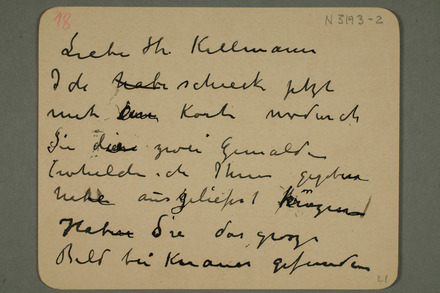 18
N 3193-2
Liebe Hr. Kellmann
Ich habe schreck jetzt
mit Karte wodurch
Sie die zwei Gemälde
ich Ihnen gegeben
habe ausgeliefert
Haben Sie das grosse
Bild bei Knauer gefunden
21